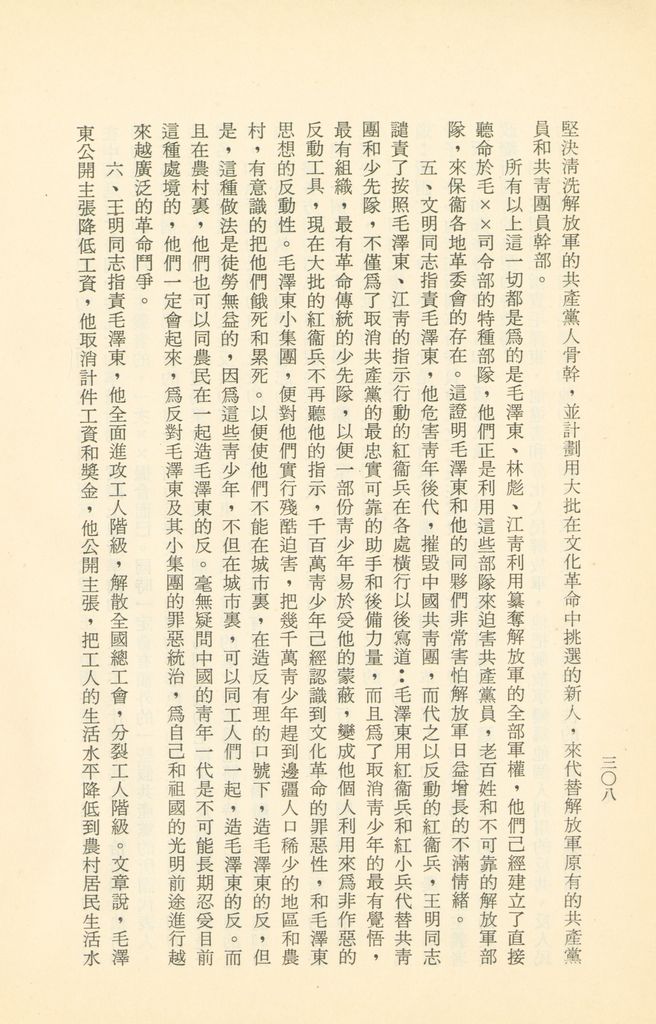 堅決淸洗解放軍的共產黨人骨幹，並計劃用大批在文化革命中挑選的新人，來代替解放軍原有的共產黨
員和共靑團員幹部。
所有以上這一切都是爲的是毛澤東、林彪、江靑利用纂奪解放軍的全部軍權，他們己經建立了直接
聽命於毛××司令部的特種部隊，他們正是利用這些部隊來迫害共產黨員，老百姓和不可靠的解放軍部
隊，來保衞各地革委會的存在。這證明毛澤東和他的同夥們非常害怕解放軍日益增長的不滿情緒。
五、文明同志指責毛澤東，他危害靑年後代，摧毀中國共靑團，而代之以反動的紅衞兵，王明同志
譴責了按照毛澤東、江靑的指示行動的紅衞兵在各處橫行以後寫道：毛澤東用紅衞兵和紅小兵代替共靑
團和少先隊，不僅爲了取消共產黨的最忠實可靠的助手和後備力量，而且爲了取消靑少年的最有覺悟，
最有組織，最有革命傳統的少先隊，以便一部份靑少年易於受他的蒙蔽，變成他個人利用來爲非作惡的
反動工具，現在大批的紅衞兵不再聽他的指示，千百萬靑少年己經認識到文化革命的罪惡性，和毛澤東
思想的反動性。毛澤東小集團，便對他們實行殘酷迫害，把幾千萬靑少年趕到邊疆人口稀少的地區和農
村，有意識的把他們餓死和累死。以便使他們不能在城市裏，在造反有理的口號下，造毛澤東的反，但
是，這種做法是徒勞無益的，因爲這些靑少年，不但在城市裏，可以同工人們一起，造毛澤東的反。而
且在農村裏，他們也可以同農民在一起造毛澤東的反。毫無疑問中國的靑年一代是不可能長期忍受目前
這種處境的，他們一定會起來，爲反對毛澤東及其小集團的罪惡統治，爲自己和祖國的光明前途進行越
來越廣泛的革命鬥爭。
六、王明同志指責毛澤東，他全面進攻工人階級，解散全國總工會，分裂工人階級。文章說，毛澤
東公開主張降低工資，他取消計件工資和獎金，他公開主張，把工人的生活水平降低到農村居民生活水
三〇八